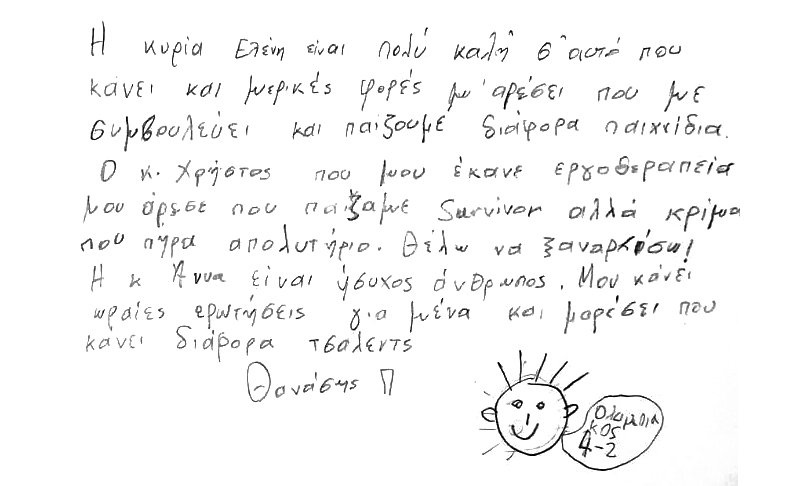 Η κυρία Ελένη είναι πολύ καλή σ' αυτό που
κάνει και μερικές φορές μ' αρέσει που με
συμβουλεύει και παίζουμε διάφορα παιχνίδια.
Ο κ. Χρήστος που μου έκανε εργοθεραπεία
μου άρεσε που παίζαμε Survivor αλλά κρίμα
που πήρα απολυτήριο. Θέλω να ξαναρχίσω!
Η κ Άννα είναι ήσυχος άνθρωπος. Μου κάνει
ωραίες ερωτήσεις για μένα και μαρέσει που
κάνει διάφορα τσαλεντς
Θανάσης Π
Ολυμπια
κος
4-2